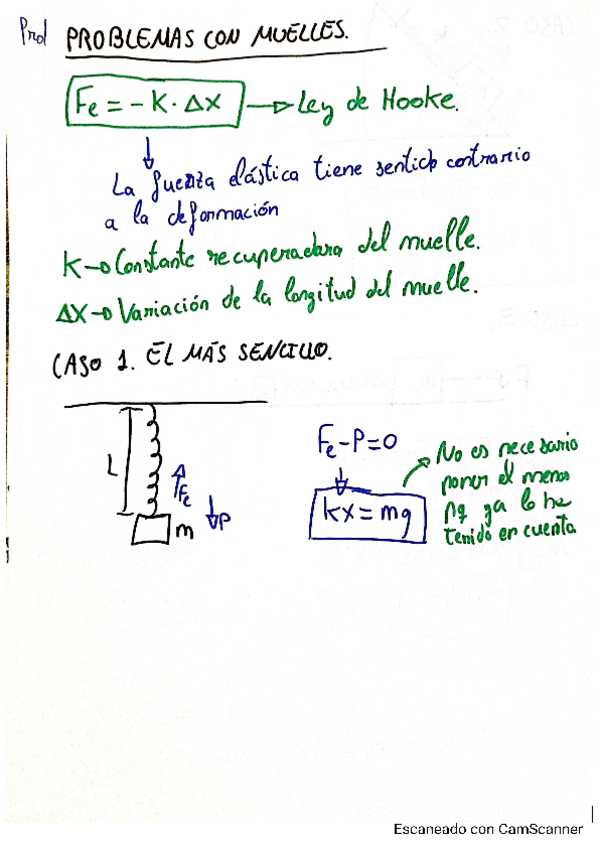 Prol PROBLEMAS CON MUELLES.
Fe = - K · ΔX → Ley de Hooke.
La fuerza elástica tiene sentido contrario
a la deformación
K → Constante recuperadora del muelle.
ΔX → Variación de la longitud del muelle.
CASO 1. EL MÁS SENCILLO.
L
Fe
P
m
Fe - P = 0
kx = mg
No es necesario
poner el menos
pq ya lo he
tenido en cuenta
Escaneado con CamScanner